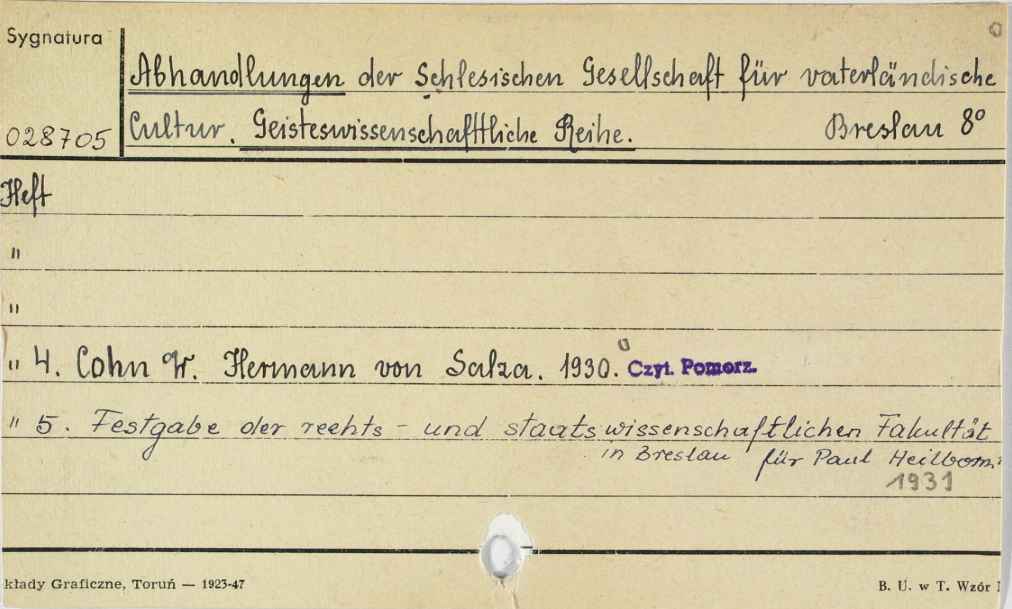 Sygnatura
Abhandlungen der Schlesischen Gesellschaft für vaterländische
028705 Cultur. Geisteswissenschaftliche Reihe. Breslau 8°
Heft
"
"
" 4. Cohn W. Hermann von Salza. 1930. Czyt. Pomorz.
" 5. Festgabe der rechts- und staatswissenschaftlichen Fakultät
in Breslau für Paul Heilborn
1931
kłady Graficzne, Toruń — 1923-47
B. U. w T. Wzór